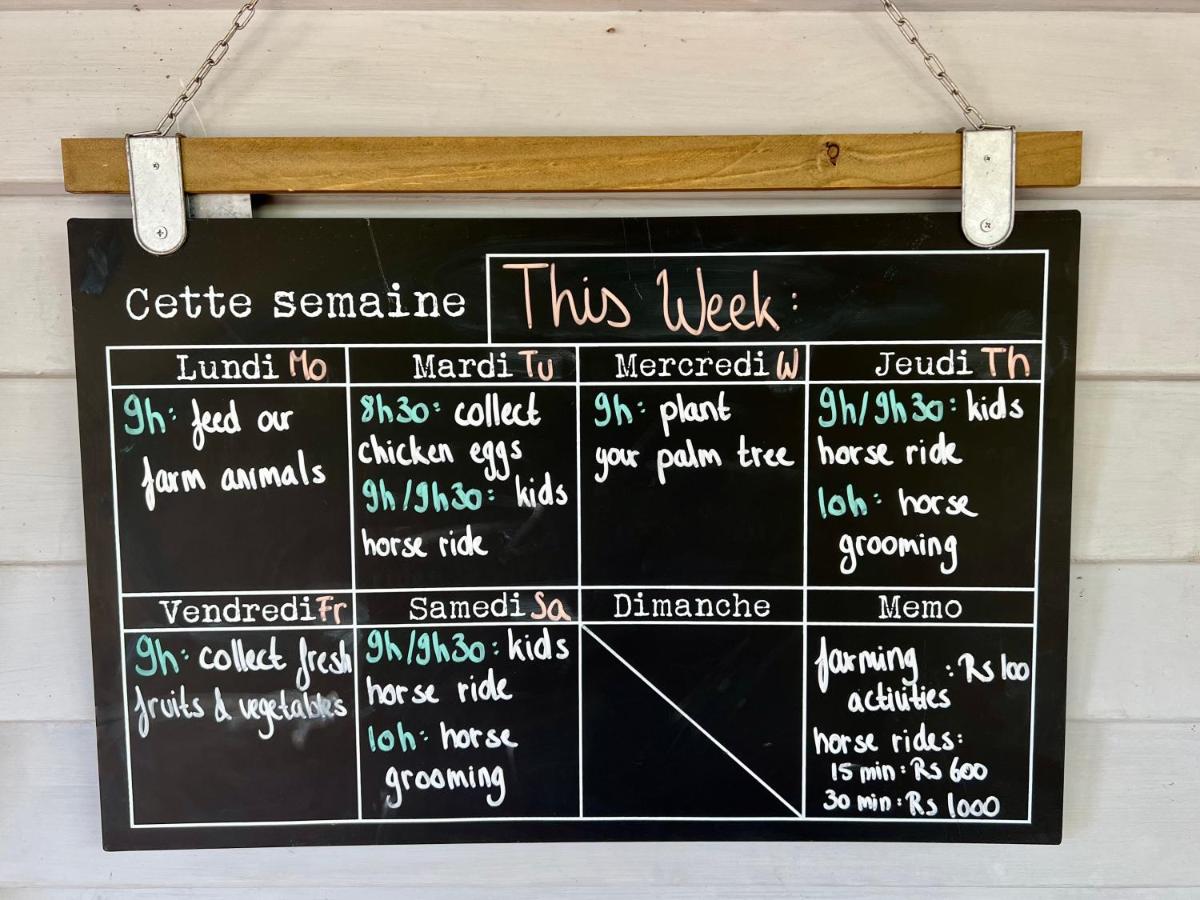 Cette semaine This Week:
Lundi Mo
9h: feed our
farm animals
Mardi Tu
8h30: collect
chicken eggs
9h/9h30: kids
horse ride
Mercredi W
9h: plant
your palm tree
Jeudi Th
9h/9h30: kids
horse ride
10h: horse
grooming
Vendredi Fr
9h: collect fresh
fruits & vegetables
Samedi Sa
9h/9h30: kids
horse ride
10h: horse
grooming
Dimanche
Memo
farming : Rs 100
activities
horse rides:
15 min: Rs 600
30 min: Rs 1000